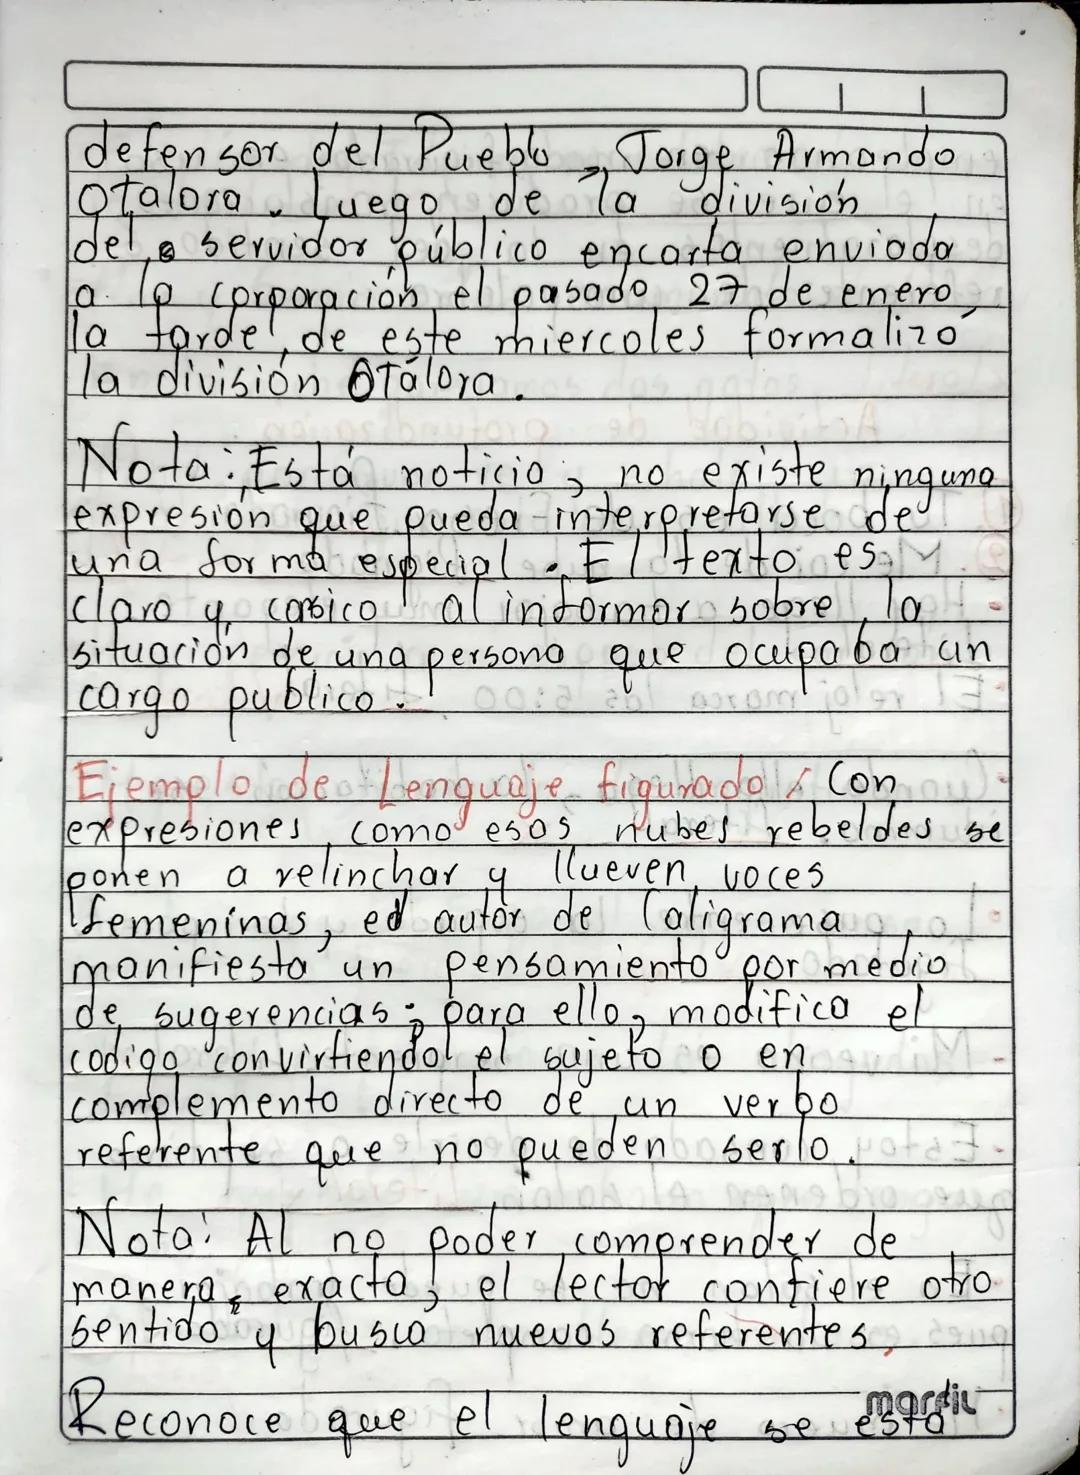 defensor del Pueblo, Jorge Armando
Otalora. Luego de la división
del servidor público encarta enviada
a la corporación el pasado 27 de enero
la tarde, de este miercoles formalizó
la división Otálora.
Nota: Está noticia, no existe ninguna
expresión que pueda interpretarse de
una forma especial. El texto es
claro y al informar sobre la
situación de una persona que ocupaba un
cargo publico.
Ejemplo de Lenguaje figurado / Con
expresiones como esos nubes rebeldes se
ponen a relinchar y llueven voces
femeninas, ed autor de Caligrama
manifiesta un pensamiento por medio
de sugerencias; para ello, modifica el
codigo convirtiendo el sujeto o en
complemento directo de un verbo
referente que no pueden serlo.
Nota: Al no poder comprender de
manera exacta, el lector confiere otro
sentido y busca nuevos referentes,
mardil
Reconoce que el lenguaje se está